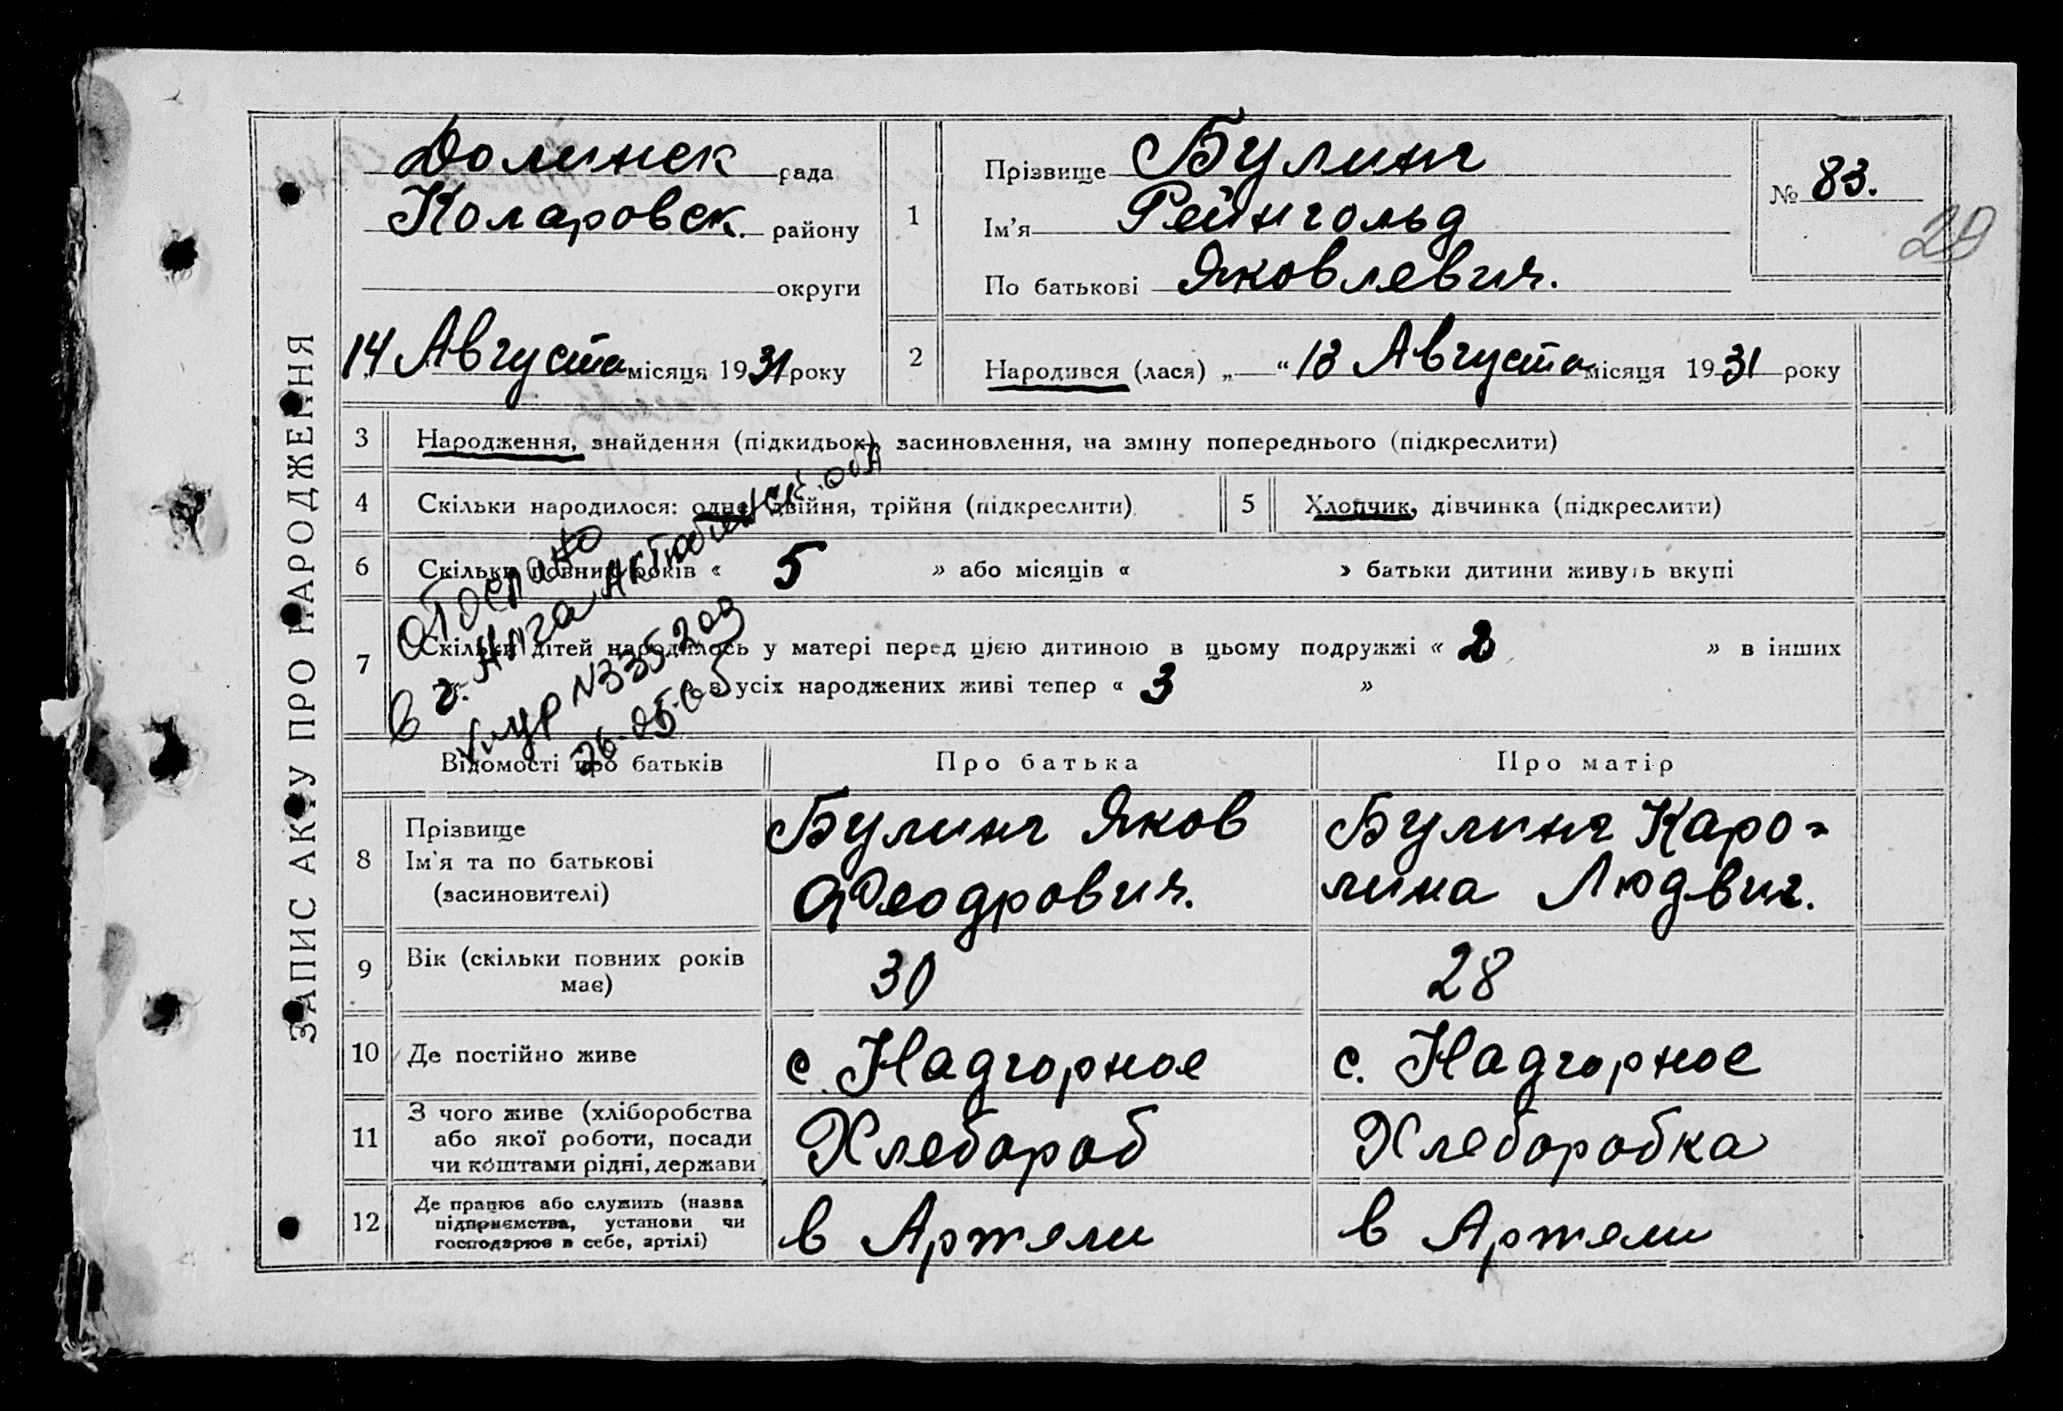 ЗАПИС АКТУ ПРО НАРОДЖЕННЯ
Долинск рада
Коларовск. району
округи
14 Августа місяця 1931 року
1
Прізвище Булинг
Ім'я Рейнгольд
По батькові Яковлевич.
№ 83.
29
2
Народився (лася) „ “ 13 Августа місяця 1931 року
3 Народження, знайдення (підкидьок), засиновлення, на зміну попереднього (підкреслити)
4 Скільки народилося: одне, двійня, трійня (підкреслити)
5 Хлопчик, дівчинка (підкреслити)
6 Скільки повних років « 5 » або місяців « » батьки дитини живуть вкупі
7 Скільки дітей народилось у матері перед цією дитиною в цьому подружжі « 2 » в інших
в усіх народжених живі тепер « 3 »
отослано
в г. Алга Актюбинск. обл
№3352 од
26-05-65
Відомості про батьків
Про батька
Про матір
8
Прізвище
Ім'я та по батькові
(засиновителі)
Булинг Яков
Феодрович.
Булинг Каро=
лина Людвиг.
9
Вік (скільки повних років
має)
30
28
10 Де постійно живе
с. Надгорное
с. Надгорное
11
З чого живе (хліборобства
або якої роботи, посади
чи коштами рідні, держави
Хлебороб
Хлеборобка
12
Де працює або служить (назва
підприємства, установи чи
господарює в себе, артілі)
в Артели
в Артели